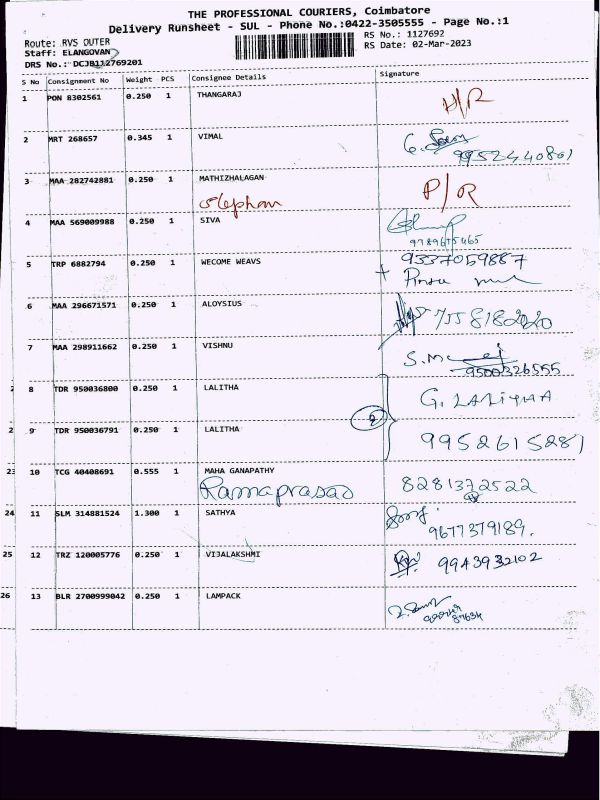 THE PROFESSIONAL COURIERS, Coimbatore
Delivery Runsheet - SUL - Phone No.:0422-3505555 - Page No.:1
Route: RVS OUTER
RS No.: 1127692
Staff: ELANGOVAN
RS Date: 02-Mar-2023
DRS No.: DCJB112769201
S No Consignment No Weight PCS Consignee Details Signature
1 PON 8302561 0.250 1 THANGARAJ H/R
2 MRT 268657 0.345 1 VIMAL
9952440801
3 MAA 282742881 0.250 1 MATHIZHALAGAN P/R
Stephan
4 MAA 569009988 0.250 1 SIVA
9789675465
5 TRP 6882794 0.250 1 WECOME WEAVS 9337059887
6 MAA 296671571 0.250 1 ALOYSIUS 7558182020
7 MAA 298911662 0.250 1 VISHNU
9500326555
8 TDR 950036800 0.250 1 LALITHA G. LALITHA
2
2 9 TDR 950036791 0.250 1 LALITHA 9952615281
23 10 TCG 40408691 0.555 1 MAHA GANAPATHY 8281372522
Ramaprasad
24 11 SLM 314881524 1.300 1 SATHYA
9677379189.
25 12 TRZ 120005776 0.250 1 VIJALAKSHMI 9943932102
26 13 BLR 2700999042 0.250 1 LAMPACK